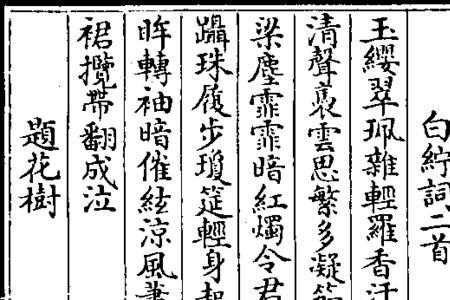 白紵詞二首
玉纓翠珮雜輕羅香汗
清聲裊雲思繁多凝
梁塵霏霏暗紅燭令君
躡珠履步瓊筵輕身起
眸轉袖暗催絃涼風蕭
裙攬帶翻成泣
題花樹